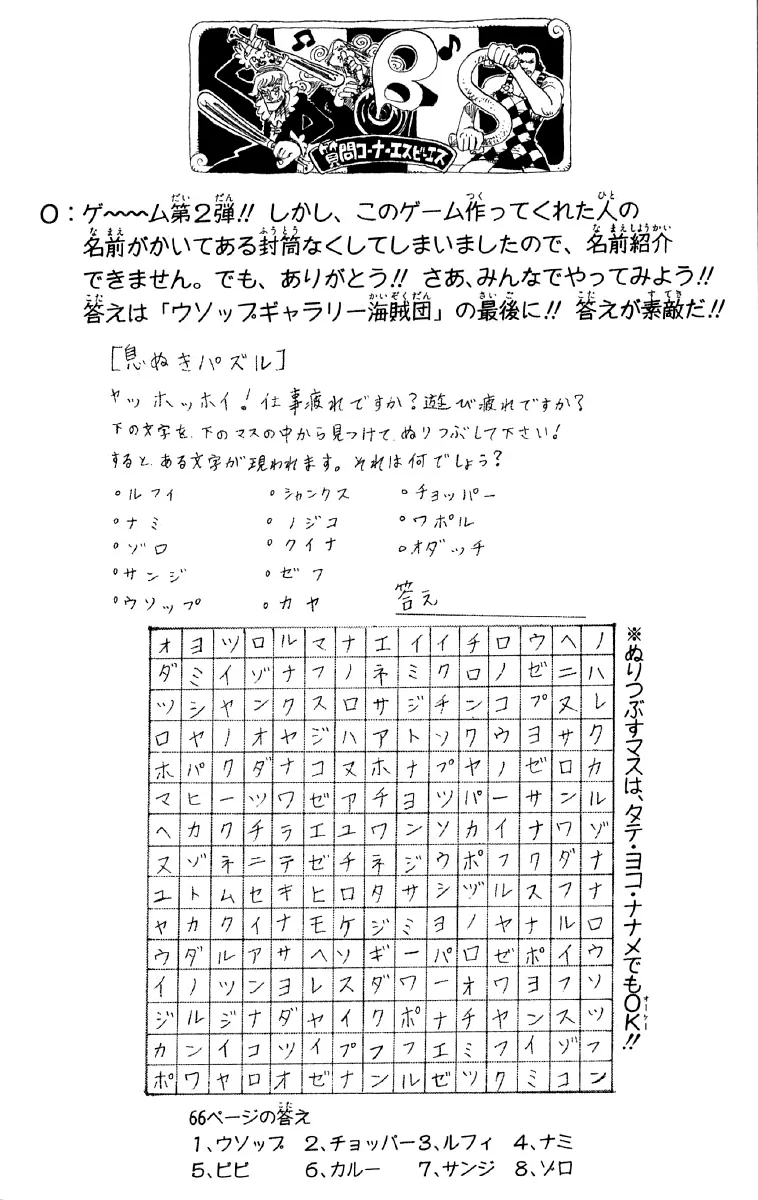 SBS
質問コーナー・エスビーエス
O：ゲ〜〜〜ム第2弾!! しかし、このゲーム作ってくれた人の
名前がかいてある封筒なくしてしまいましたので、名前紹介
できません。でも、ありがとう!! さあ、みんなでやってみよう!!
答えは「ウソップギャラリー海賊団」の最後に!! 答えが素敵だ!!
[息ぬきパズル]
ヤッホッホイ!仕事疲れですか?遊び疲れですか?
下の文字を、下のマスの中から見つけて、ぬりつぶして下さい!
すると、ある文字が現われます。それは何でしょう?
。ルフィ 。シャンクス 。チョッパー
。ナミ 。ノジコ 。ワポル
。ゾロ 。クイナ 。オダッチ
。サンジ 。ゼフ
。ウソップ 。カヤ 答え
オヨツロルマナエイイチロウヘノ
ダミイゾナフノネミクロノゼニハ
ツシャンクスロサジチンコプヌレ
ロヤノオヤジハアトソクウヨサク
ホパクダナコヌホナプヤノゼロカ
マヒーツワゼアチョツパーサンル
ヘカクチラエユワンソカイナワゾ
ヌゾネニテゼチネジウポフクダナ
ユトムセキヒロタサシヅルスフナ
ヤカクイナモケジミヨノヤナルロ
ウダルアサヘソギーパロゼポイウ
イノツンヨレスダワーオワヨフソ
ジルジナダヤイクポナチャンスツ
カンイコツイプフフエミフイゾフ
ポワヤロオゼナンルゼツクミコン
※ぬりつぶすマスは、タテ・ヨコ・ナナメでもOK!!
66ページの答え
1、ウソップ 2、チョッパー 3、ルフィ 4、ナミ
5、ビビ 6、カルー 7、サンジ 8、ゾロ